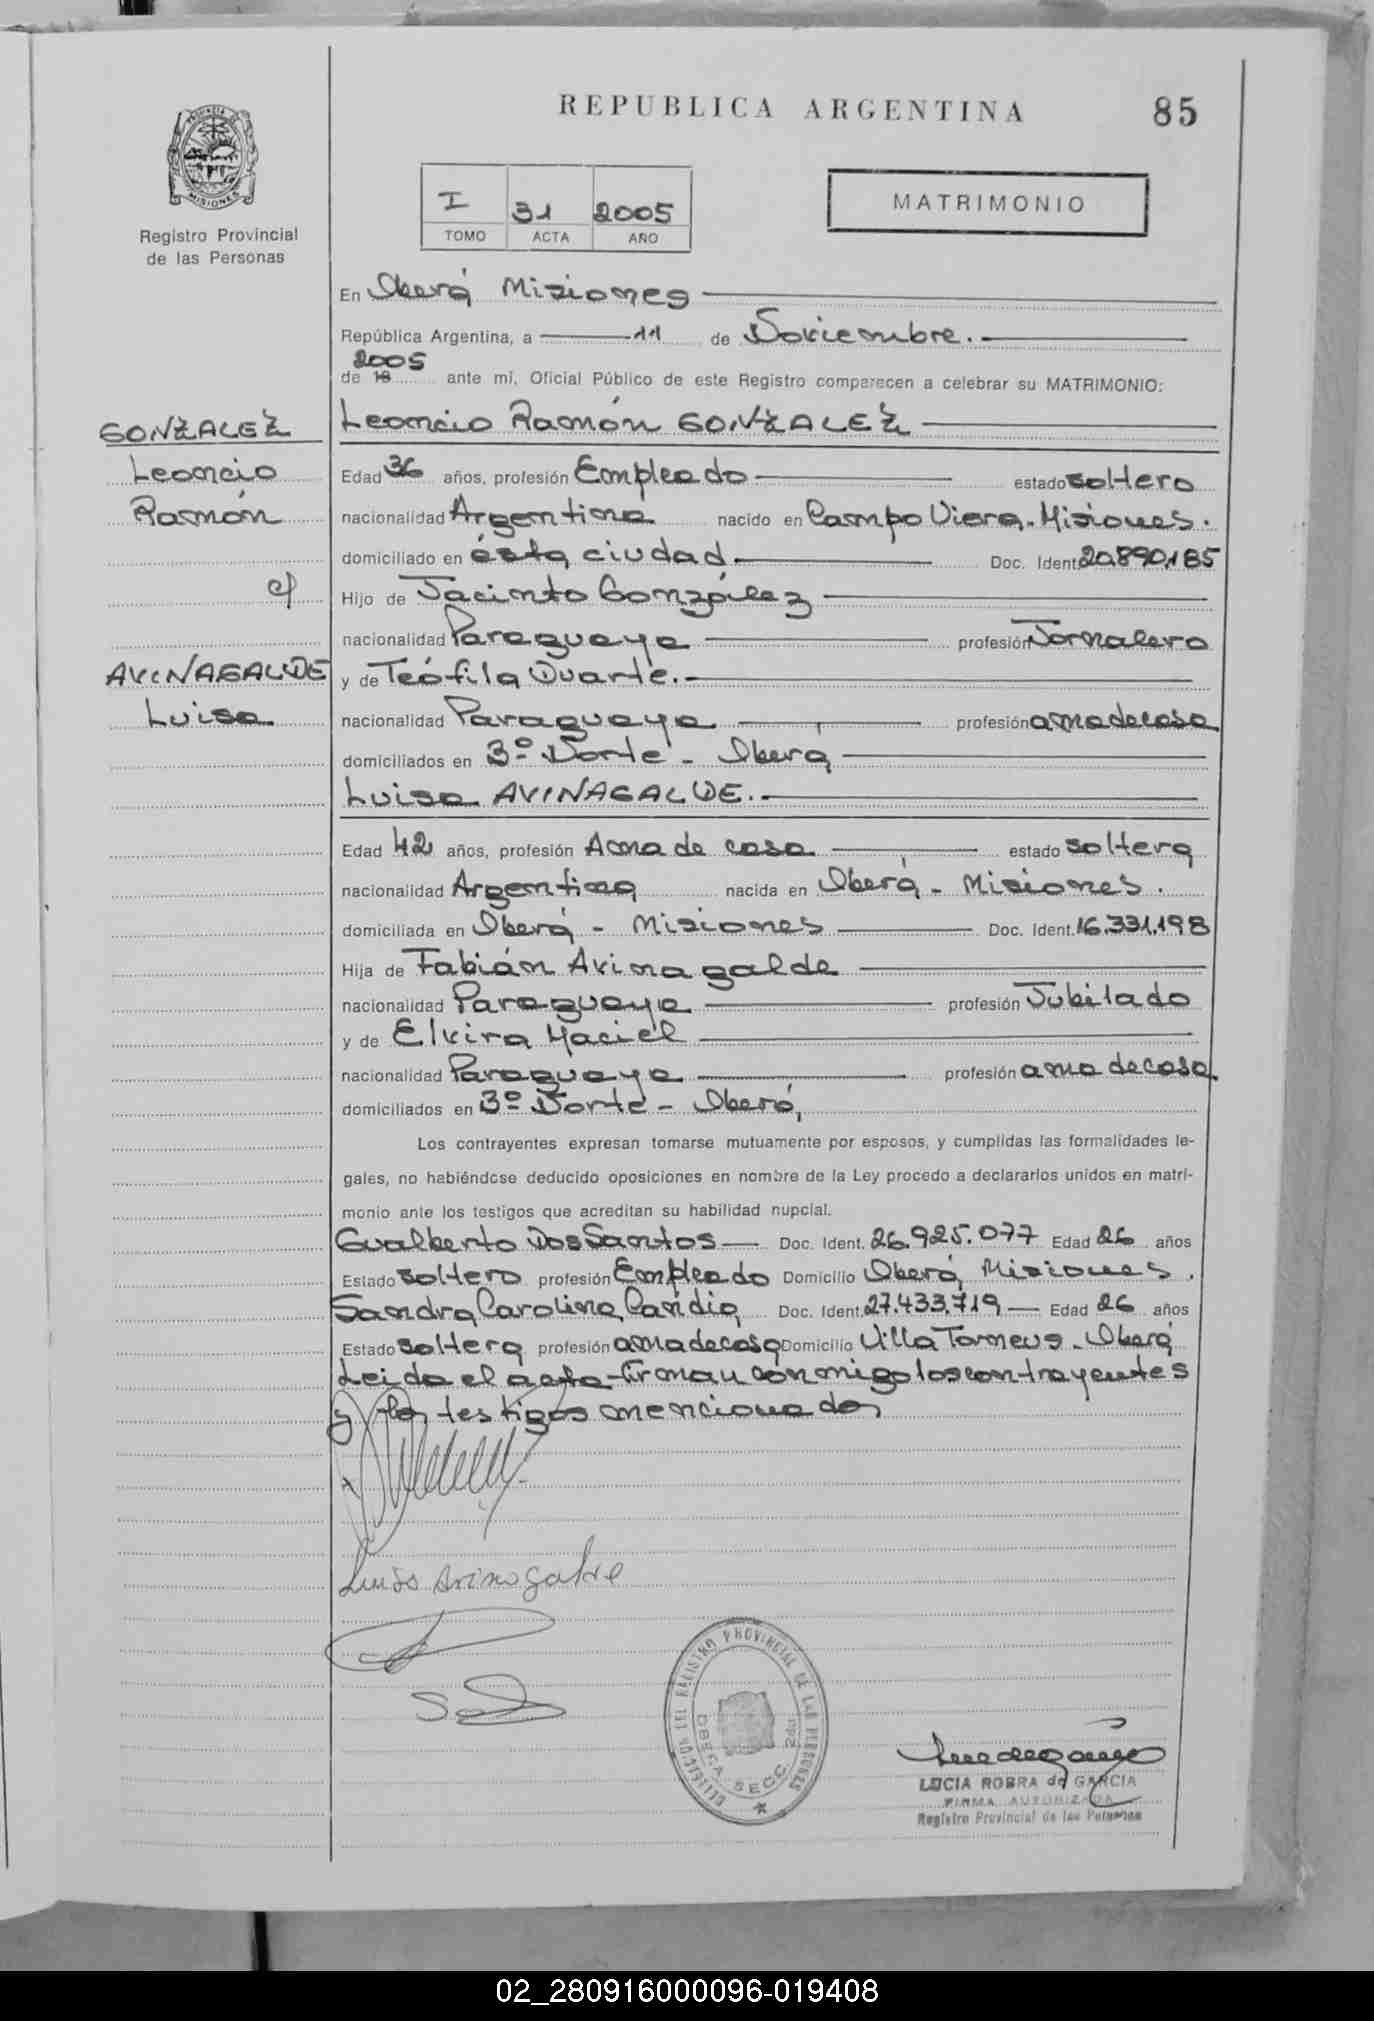 REPUBLICA ARGENTINA
85
PROVINCIA DE MISIONES
Registro Provincial
de las Personas
I 31 2005
TOMO ACTA AÑO
MATRIMONIO
En Oberá Misiones
República Argentina, a 11 de Noviembre.
2005
de 19 ante mí, Oficial Público de este Registro comparecen a celebrar su MATRIMONIO:
GONZALEZ
Leoncio
Ramón
c/
AVINAGALDE
Luisa
Leoncio Ramón GONZALEZ
Edad 36 años, profesión Empleado estado soltero
nacionalidad Argentina nacido en Campo Viera. Misiones.
domiciliado en ésta ciudad Doc. Ident. 20.890.185
Hijo de Jacinto González
nacionalidad Paraguaya profesión Jornalero
y de Teófila Duarte.
nacionalidad Paraguaya profesión ama de casa
domiciliados en 3º Norte - Oberá
Luisa AVINAGALDE.
Edad 42 años, profesión Ama de casa estado soltera
nacionalidad Argentina nacida en Oberá - Misiones.
domiciliada en Oberá - Misiones Doc. Ident. 16.331.198
Hija de Fabián Avinagalde
nacionalidad Paraguaya profesión Jubilado
y de Elvira Maciel
nacionalidad Paraguaya profesión ama de casa.
domiciliados en 3º Norte - Oberá,
Los contrayentes expresan tomarse mutuamente por esposos, y cumplidas las formalidades le-
gales, no habiéndose deducido oposiciones en nombre de la Ley procedo a declararlos unidos en matri-
monio ante los testigos que acreditan su habilidad nupcial.
Gualberto Dos Santos Doc. Ident. 26.925.077 Edad 26 años
Estado soltero profesión Empleado Domicilio Oberá, Misiones.
Sandra Carolina Candia Doc. Ident. 27.433.719 Edad 26 años
Estado soltera profesión ama de casa Domicilio Villa Torneus. Oberá
Leida el acta firman conmigo los contrayentes
y los testigos mencionados
Luisa Avinagalde
DELEGACION DEL REGISTRO PROVINCIAL DE LAS PERSONAS
OBERA SECC. 2da
LUCIA ROBRA de GARCIA
FIRMA AUTORIZADA
Registro Provincial de las Personas
02_280916000096-019408